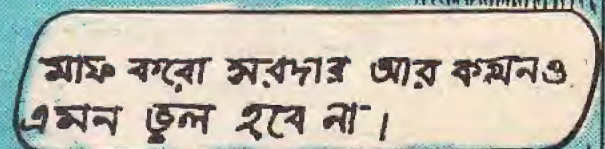 মাফ করো সরদার আর কখনও
এমন ভুল হবে না।